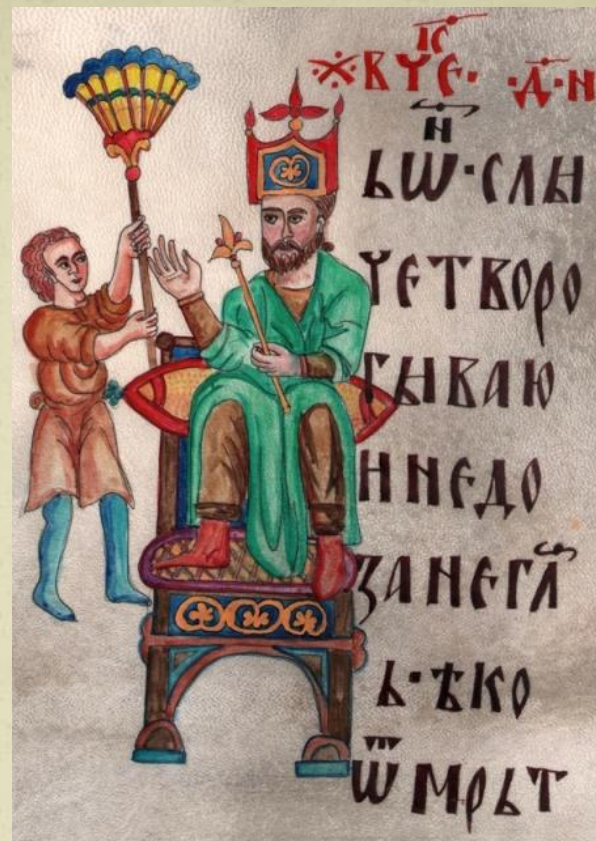 ※ВЧЕ·ІС ·Д·Н
ЬѠН·СЛЫ
ЧЕТВОРО
ГЫВАЮ
ННЕДО
ЗАНЕГЛ҃
Ь·ѢКО
ѾМРЬТ